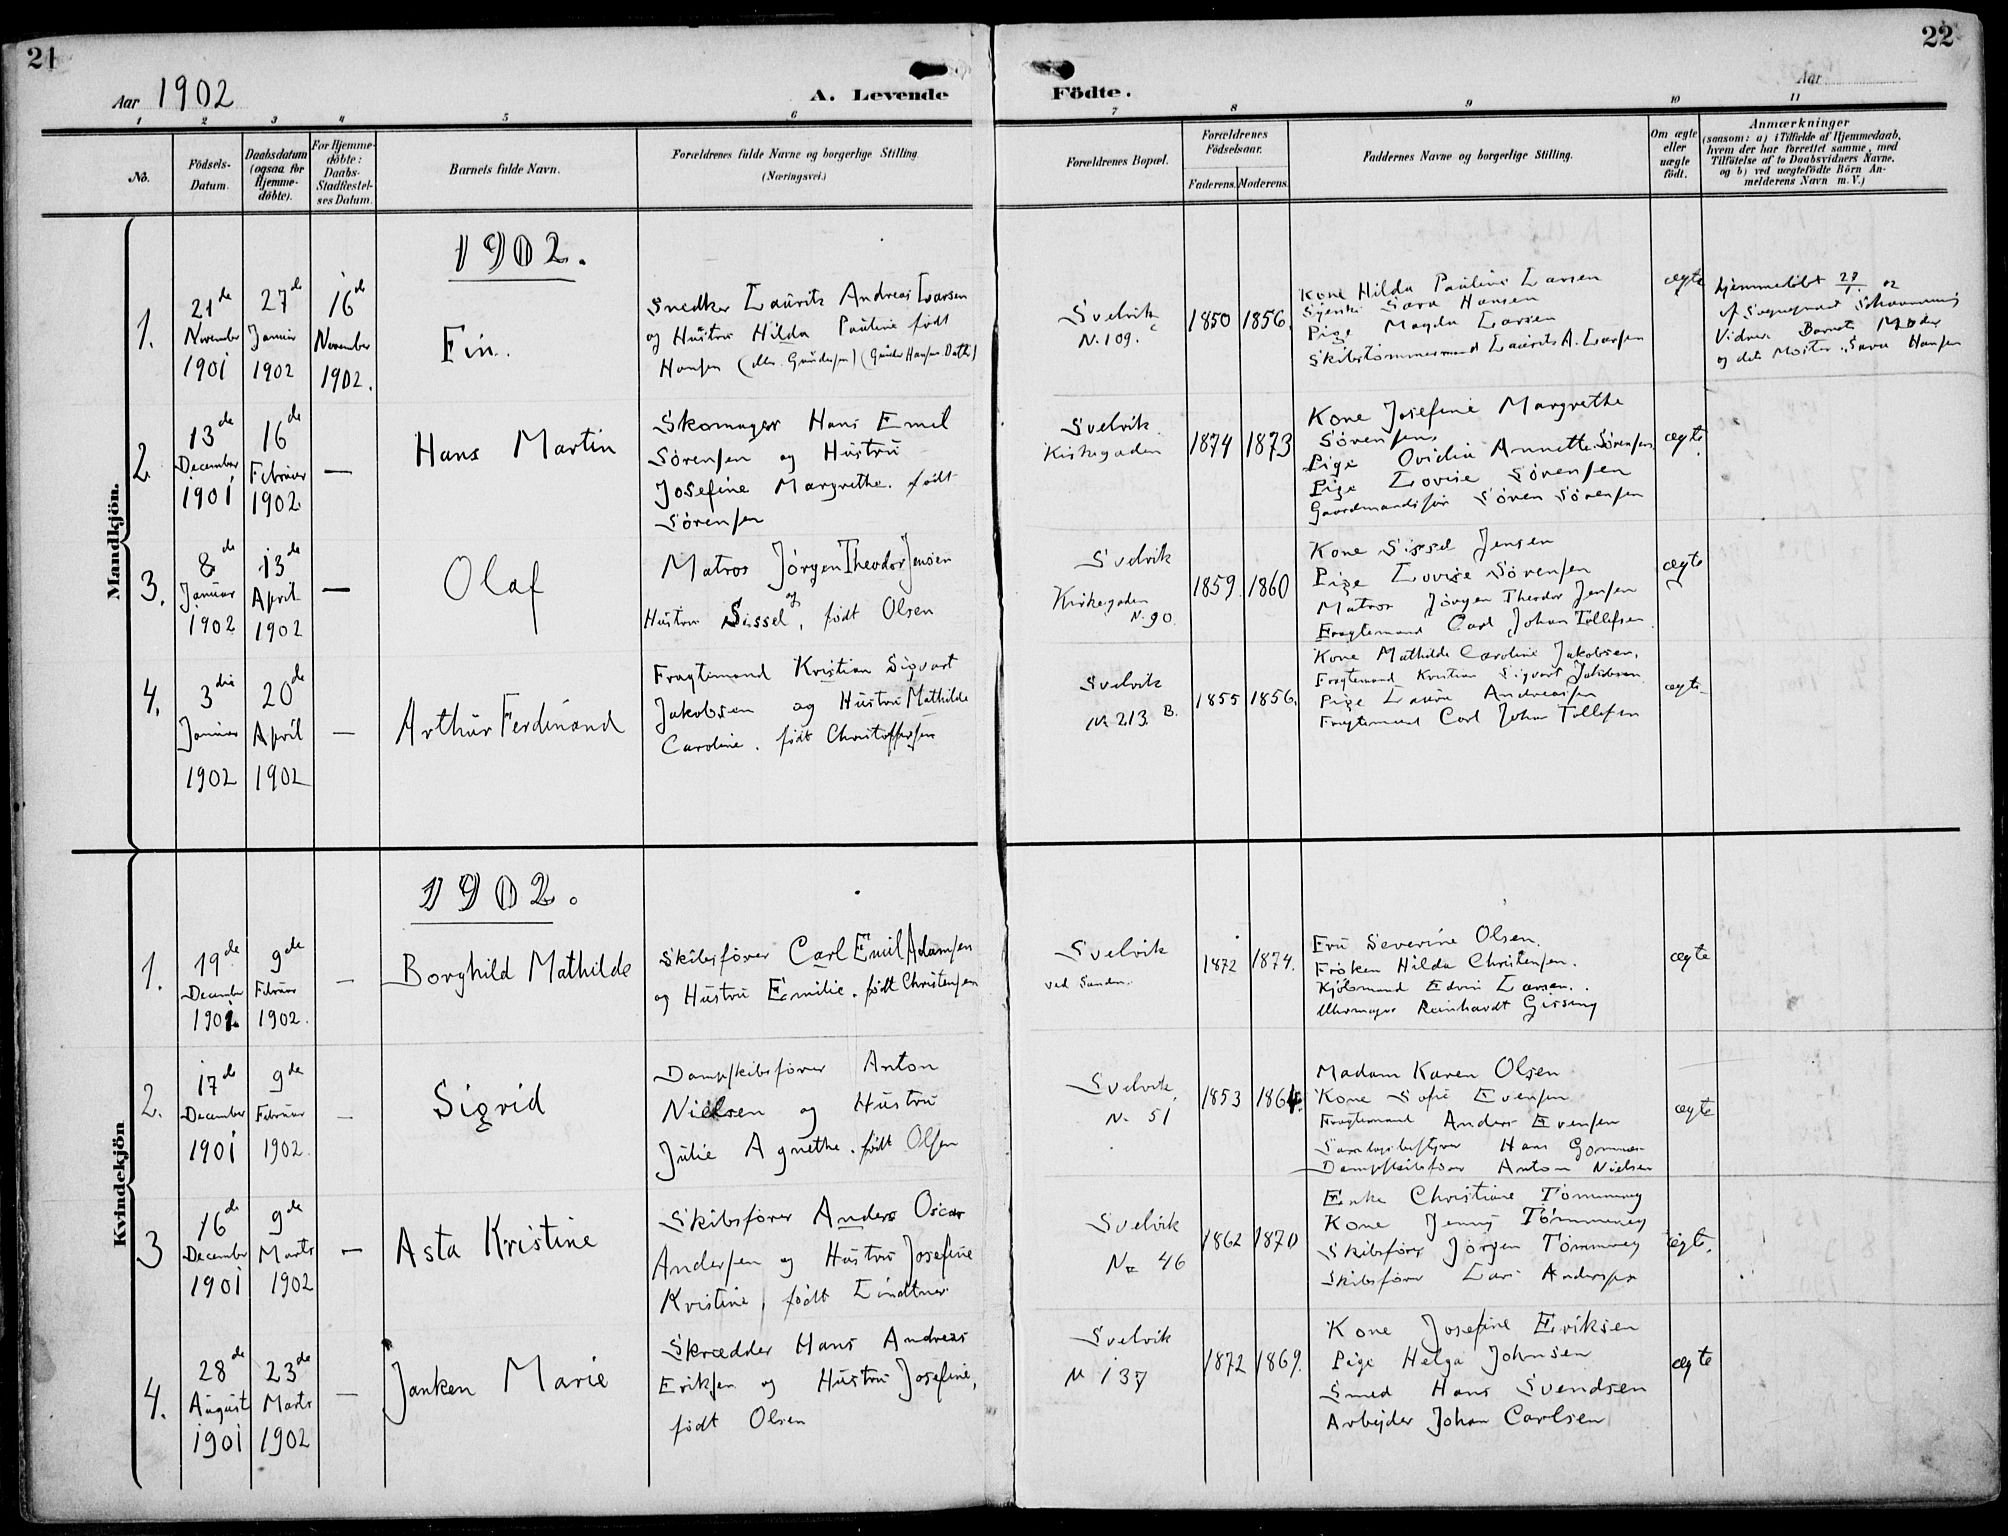 21
22
Aar 1902
A. Levende
Födte.
Aar
1 2 3 4 5 6 7 8 9 10 11
No.
Födsels-Datum.
Daabsdatum (ogsaa for Hjemme-döbte).
For Hjemme-döbte: Daabs-Stadfæstel-ses Datum.
Barnets fulde Navn.
Forældrenes fulde Navne og borgerlige Stilling.
(Næringsvei.)
Forældrenes Bopæl.
Forældrenes Födselsaar.
Faderens. Moderens.
Faddernes Navne og borgerlige Stilling.
Om ægte eller uægte födt.
Anmærkninger
(saasom: a) i Tilfælde af Hjemmedaab,
hvem der har forrettet samme, med
Tilföielse af to Daabsvidners Navne.
og b) ved uægtefödte Börn An-
melderens Navn m. V.)
Mandkjön.
1902.
1.
21de November 1901
27de Januar 1902
16de November 1902.
Fin.
Snedker Lauritz Andreas Larsen
og Hustru Hilda Pauline født
Hansen (eller Gundersen) (Gunder Hansens Datter)
Svelvik
N. 109. c
1850
1856.
Kone Hilda Pauline Larsen
Sara Hansen
Pige Magda Larsen
Skibstømmermand Laurits A. Larsen
ægte
hjemmedøbt
af Sognepræst
Vidner Barnets Moder
og dets Moster Sara Hansen
2
13de December 1901
16de Februar 1902.
—
Hans Martin
Skomager Hans Emil
Sørensen og Hustru
Josefine Margrethe. født
Sørensen
Svelvik
Kirkegaden
1874
1873
Kone Josefine Margrethe
Sörensen,
Pige Ovidia Annette Sørensen
Pige Lovise Sørensen
Gaardmandssøn Søren Sørensen
ægte.
3.
8de Januar 1902
13de April 1902
—
Olaf
Matros Jørgen Theodor Jensen
og
Hustru Sissel, født Olsen
Svelvik
Kirkegaden
N. 90.
1859.
1860
Kone Sissel Jensen
Pige Lovise Sörensen
Matros Jörgen Theodor Jensen
Fragtemand Carl Johan Tollefsen.
ægte
4.
3die Januar 1902
20de April 1902
—
Arthur Ferdinand
Fragtemand Kristian Sigvart
Jakobsen og Hustru Mathilde
Caroline. født Christoffersen
Svelvik
N. 213. B.
1855
1856.
Kone Mathilde Caroline Jakobsen,
Fragtemand Kristian Sigvart Jakobsen
Pige Laura Andreassen
Fragtemand Carl Johan Tollefsen
ægte
Kvindekjön
1902.
1.
19de December 1901.
9de Februar 1902.
—
Borghild Mathilde
Skibsfører Carl Emil Adamsen
og Hustru Emilie. født Christensen
Svelvik
ved Sanden.
1872
1874.
Fru Severine Olsen.
Fröken Hilda Christensen.
Kjøbmand Edvin Larsen.
Uhrmager Reinhardt Gissing
ægte
2.
17de December 1901
9de Februar 1902.
—
Sigrid
Dampskibsfører Anton
Nielsen og Hustru
Julie Agnethe. født Olsen
Svelvik,
N. 51
1853
1864.
Madam Karen Olsen
Kone Sofie Evensen
Fragtemand Anders Evensen
Hans
Dampskibsfører Anton Nielsen
ægte
3
16de December 1901
9de Marts 1902
—
Asta Kristine
Skibsfører Anders Oscar
Andersen og Hustru Josefine
Kristine, født Lindtner
Svelvik
No 46
1862
1870
Enke Christiane Tømmeraa
Kone Jenny Tømmeraa
Skibsfører Jørgen Tømmeraa
Skibsfører Lars Andersen
ægte.
4.
28de August 1901
23de Marts 1902
—
Janken Marie
Skrædder Hans Andreas
Eriksen og Hustru Josefine,
født Olsen
Svelvik
N 137
1872
1869.
Kone Josefine Eriksen
Pige Helga Johnsen
Smed Hans Svendsen
Arbejder Johan Carlsen
ægte